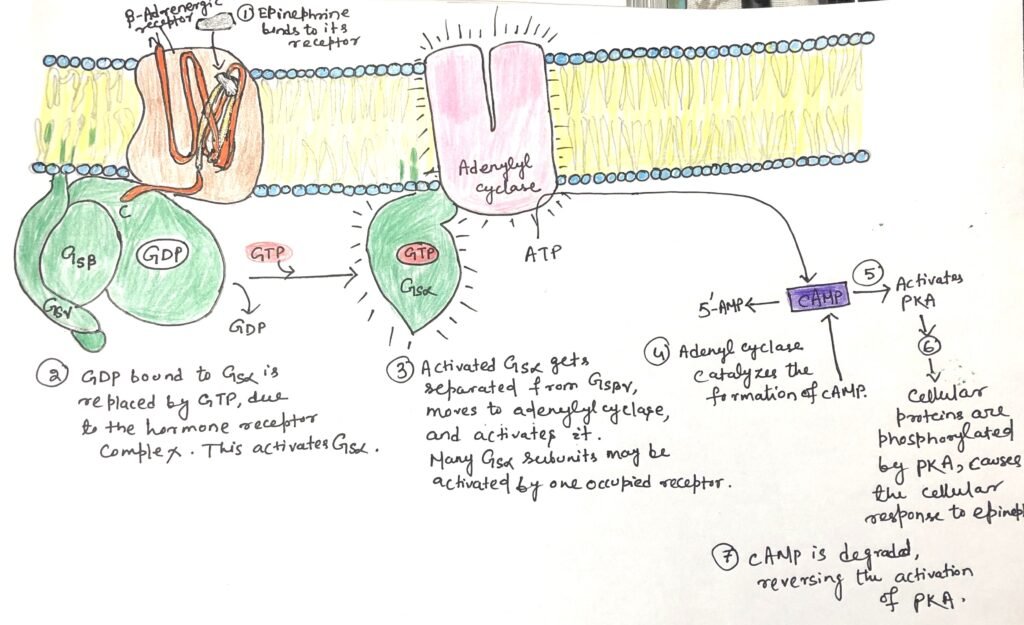 β-Adrenergic
receptor
① Epinephrine
binds to its
receptor
N
C
Adenylyl
cyclase
Gsβ
GDP
Gsγ
GTP
GDP
GTP
Gsα
ATP
5'-AMP
cAMP
⑤
Activates
PKA
⑥
Cellular
proteins are
phosphorylated
by PKA, causes
the cellular
response to epineph
② GDP bound to Gsα is
replaced by GTP, due
to the hormone receptor
Complex. This activates Gsα.
③ Activated Gsα gets
separated from Gsβγ,
moves to adenylylcyclase,
and activates it.
Many Gsα subunits may be
activated by one occupied receptor.
④ Adenyl cyclase
catalyzes the
formation of cAMP.
⑦ cAMP is degraded,
reversing the activation
of PKA.